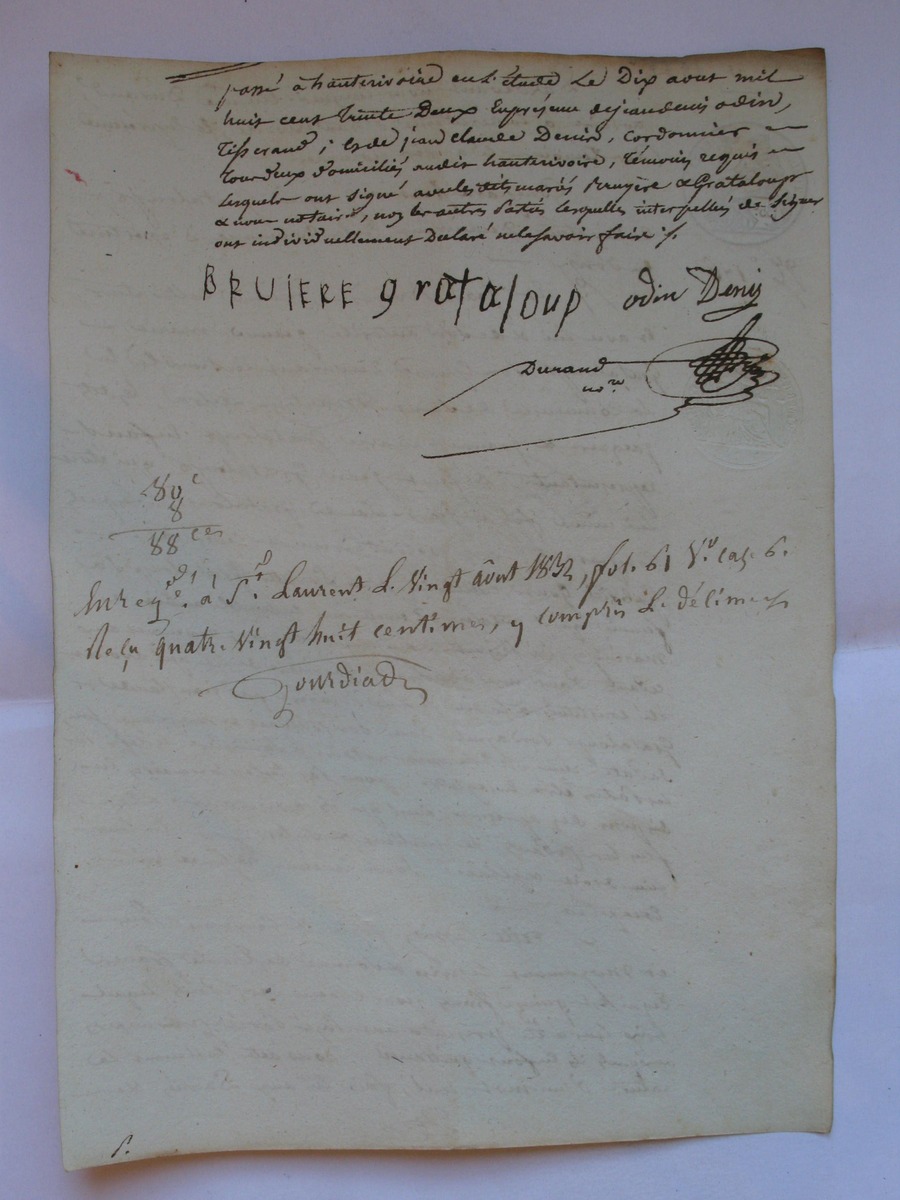 passé à hauterivoire en l'étude Le Dix aout mil
huit cent Trente Deux En présence de jean denis odin,
Tisserand, et de jean claude Denis, Cordonnier
Tous deux domiciliés audit hauterivoire, Témoins requis
Lesquels ont signé avec lesdits mariés Bruyère & Grataloup
& nous notaire, non les autres parties lesquelles interpellés de signer
ont individuellement Déclaré ne le savoir faire /.
BRUIERE grataloup odin Denis
Durand
nore
80c
8
88 ces
Enregé. à St. Laurent Le Vingt août 1832, fol. 61 Vo. case 6.
Reçu quatre Vingt huit centimes, y compris Le décime